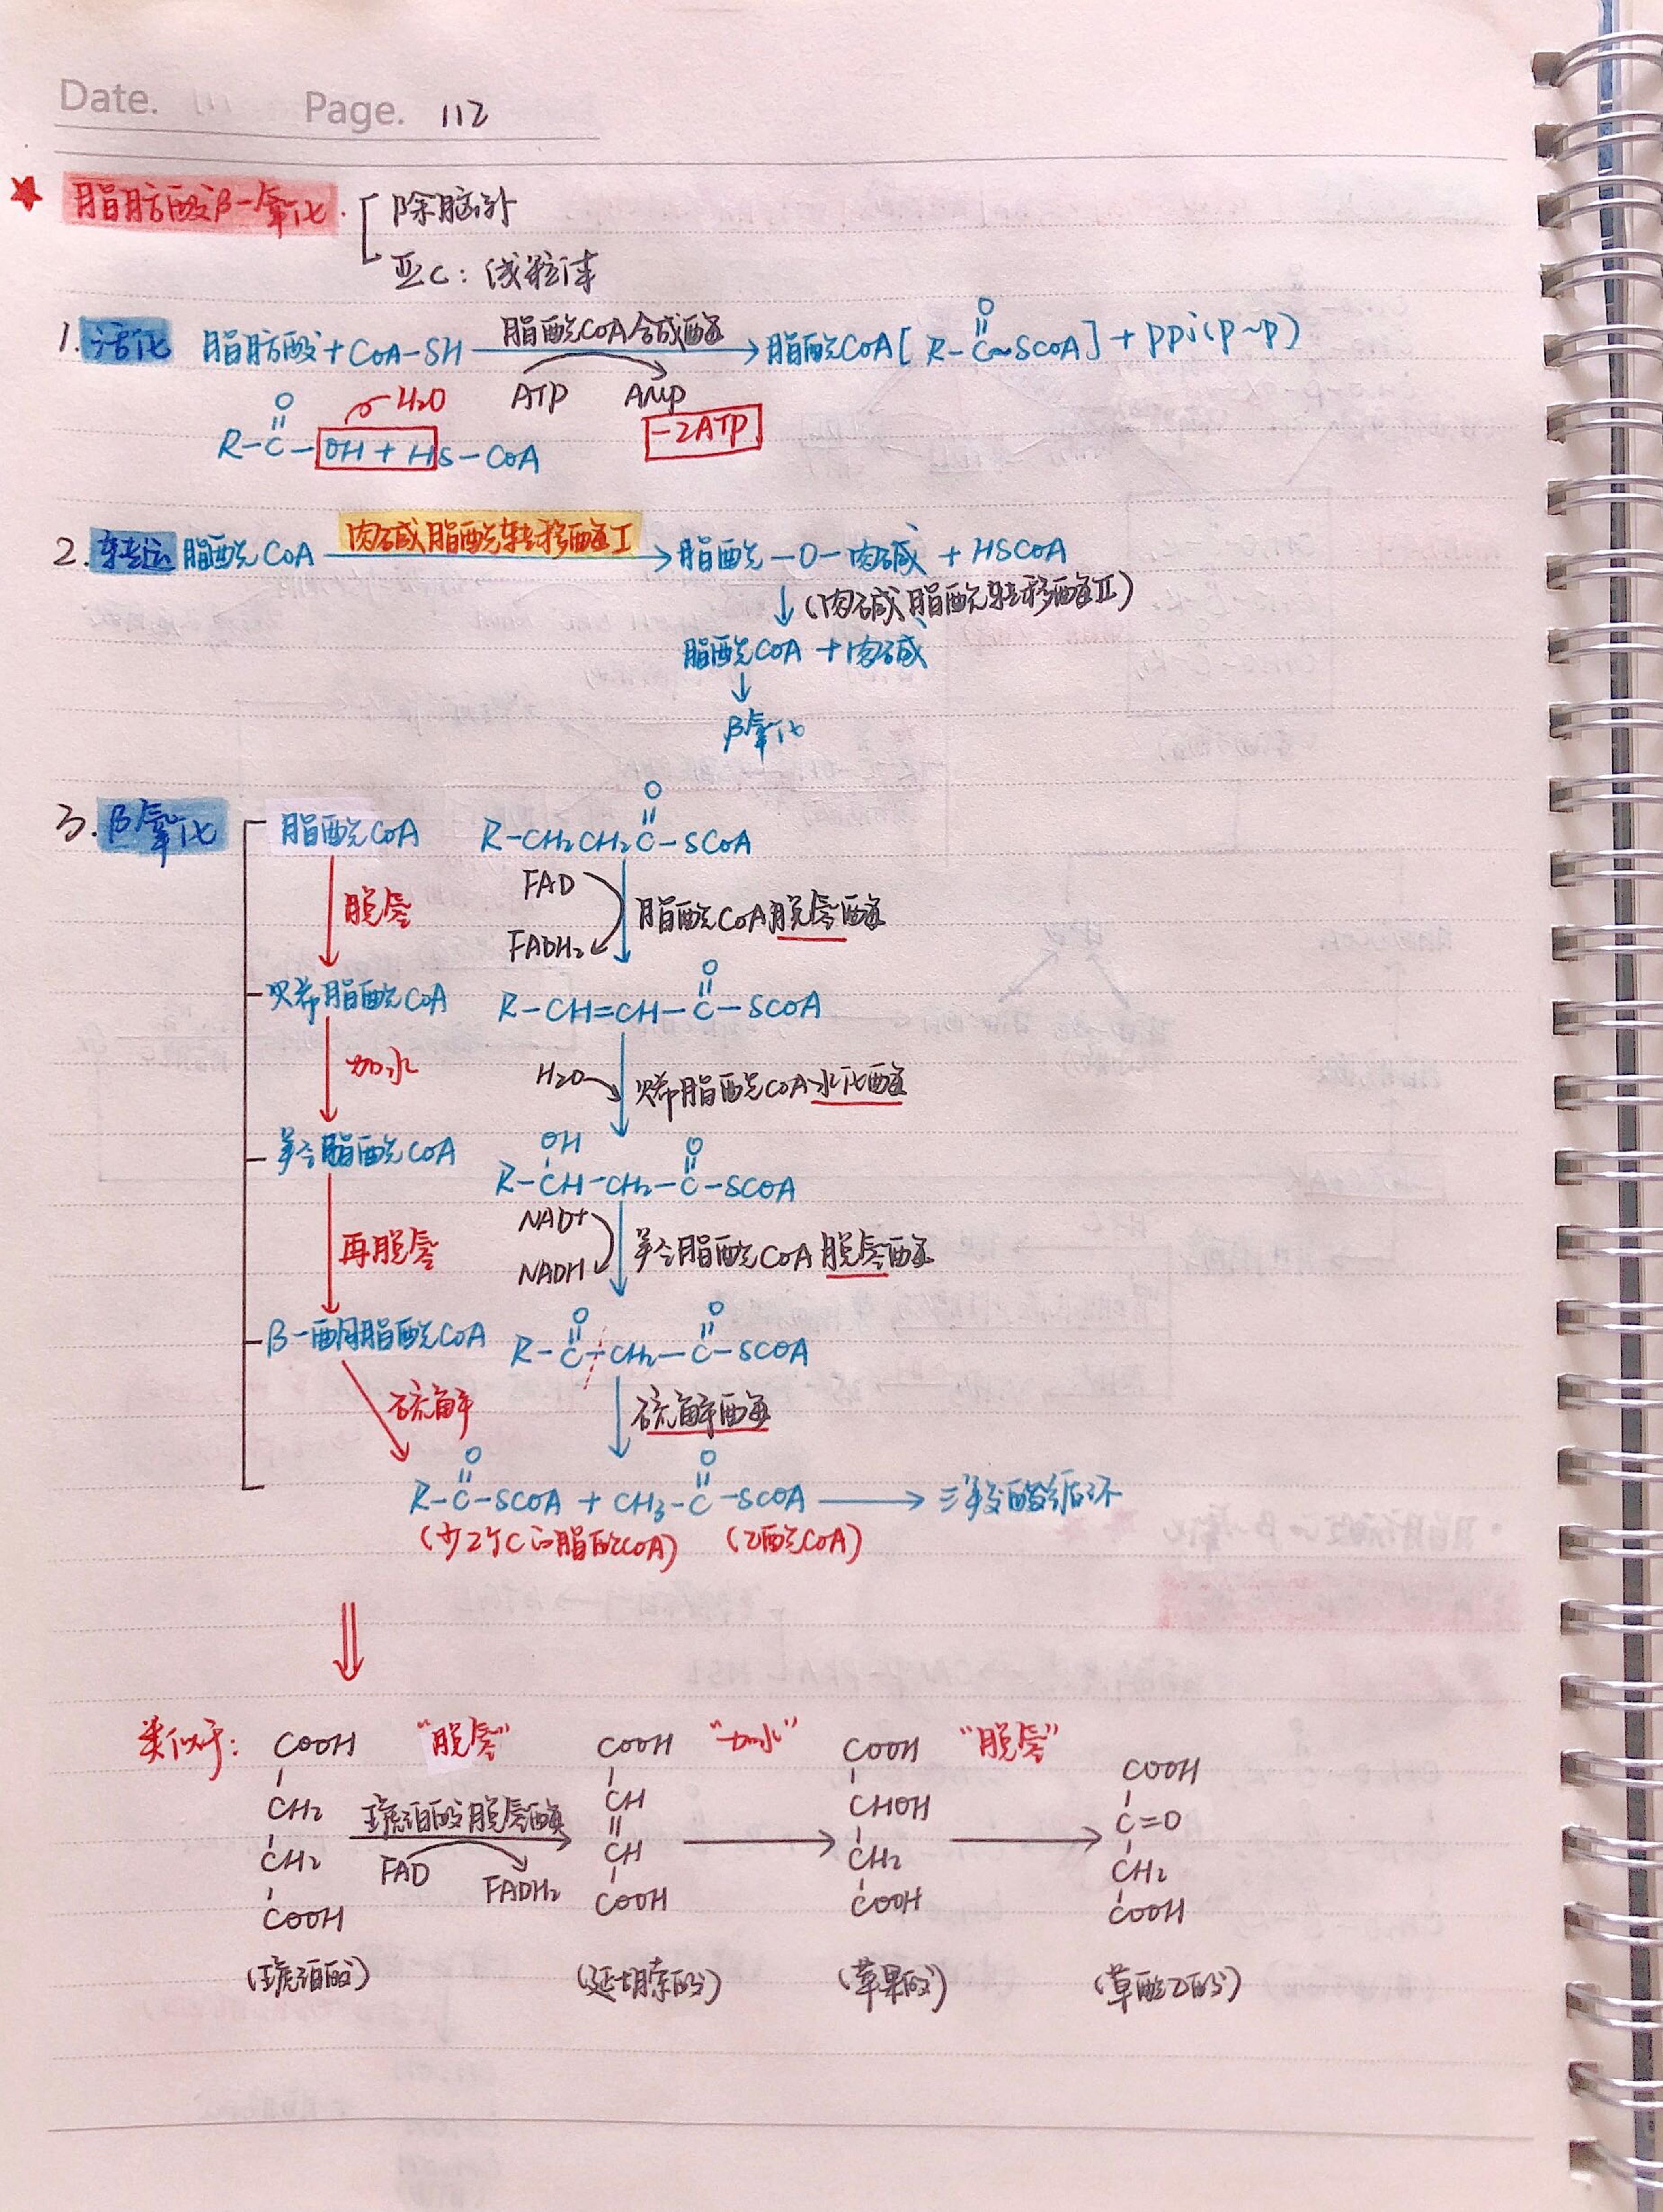 Date. Page. 112
★ 脂肪酸β-氧化. 除脑外
亚C: 线粒体
1. 活化 脂肪酸+CoA-SH 脂酰CoA合成酶 脂酰CoA[R-C~SCoA]+PPi(P~P)
O
ATP AMP
-2ATP
O H2O
R-C-OH+HS-CoA
2. 转运 脂酰CoA 肉碱脂酰转移酶I 脂酰-O-肉碱 + HSCoA
(肉碱脂酰转移酶II)
脂酰CoA + 肉碱
β氧化
3. β氧化 脂酰CoA R-CH2CH2C-SCoA
O
脱氢 FAD 脂酰CoA脱氢酶
FADH2
O
烯脂酰CoA R-CH=CH-C-SCoA
加水 H2O 烯脂酰CoA水化酶
OH O
羟脂酰CoA R-CH-CH2-C-SCoA
再脱氢 NAD+ 羟脂酰CoA脱氢酶
NADH
O O
β-酮脂酰CoA R-C-CH2-C-SCoA
硫解 硫解酶
O O
R-C-SCoA + CH3-C-SCoA 三羧酸循环
(少2个C的脂酰CoA) (乙酰CoA)
类似于: COOH "脱氢" COOH "加水" COOH "脱氢" COOH
CH2 琥珀酸脱氢酶 CH CHOH C=O
CH2 FAD FADH2 CH CH2 CH2
COOH COOH COOH COOH
(琥珀酸) (延胡索酸) (苹果酸) (草酰乙酸)